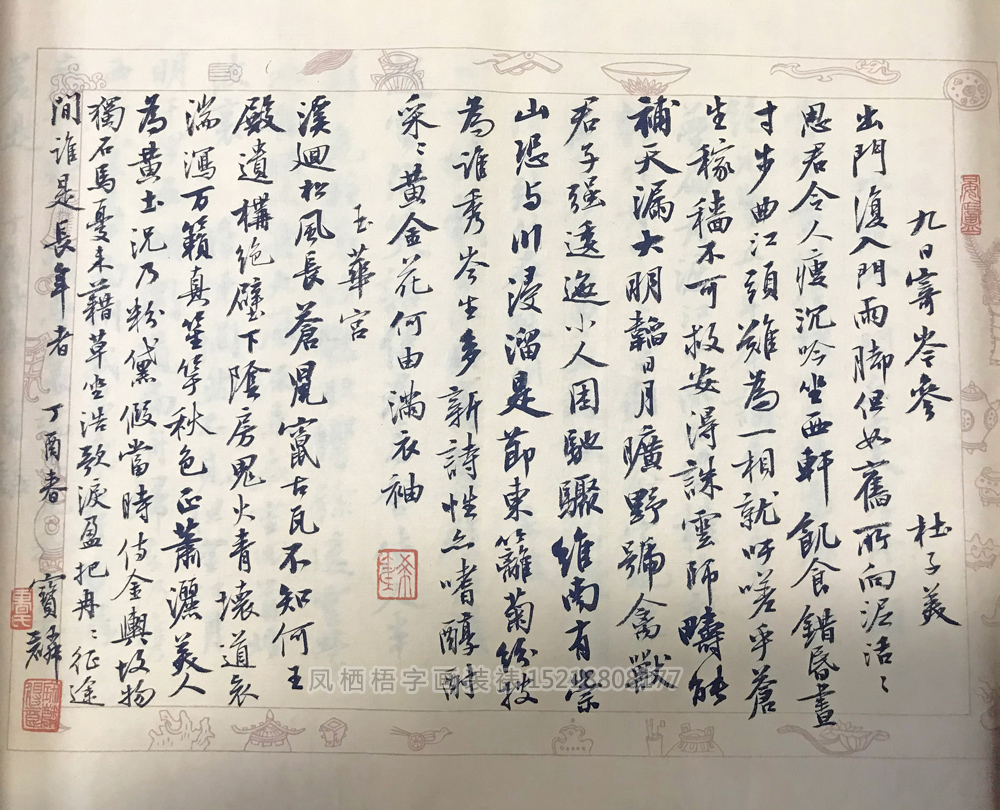 九日寄岑參 杜子美
出門復入門雨脚但如舊所向泥活〻
思君令人瘦沉吟坐西軒食錯昏晝
寸步曲江頭難為一相就吁嗟乎蒼
生稼穡不可救安得誅雲師疇能
補天漏大明韜日月曠野號禽獸
君子强逶迤小人困馳驟維南有崇
山恐与川浸溜是節東籬菊紛披
為誰秀岑生多新詩性亦嗜醇酎
采〻黃金花何由滿衣袖
玉華宮
溪迴松風長蒼鼠竄古瓦不知何王
殿遺構絕壁下陰房鬼火青壞道哀
湍瀉万籟真笙竽秋色正蕭灑美人
為黃土況乃粉黛假當時侍金輿故物
獨石馬憂来藉草坐浩歌淚盈把冉〻征途
間誰是長年者 丁酉春 寶麟
凤栖梧字画装裱